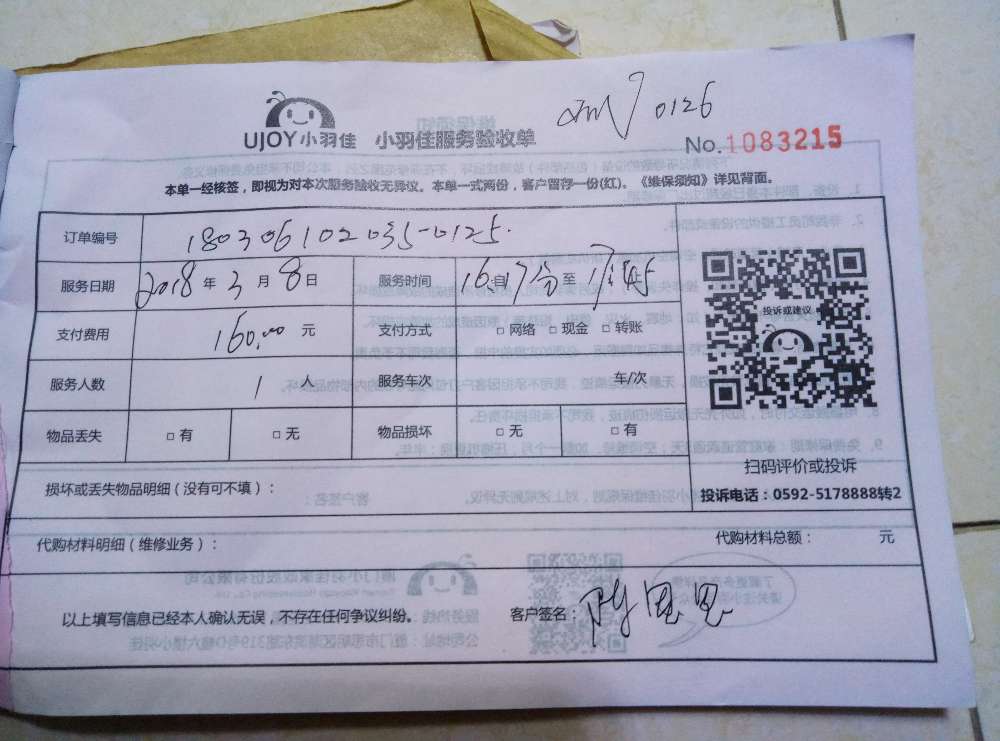 0126
UJOY小羽佳 小羽佳服务验收单
No.1083215
本单一经核签，即视为对本次服务验收无异议。本单一式两份，客户留存一份(红)。《维保须知》详见背面。
订单编号 180306102035-0125.
服务日期 2018年3月8日 服务时间 16时17分至17
支付费用 160.00 元 支付方式 □网络 □现金 □转账
投诉或建议
服务人数 1 人 服务车次 车/次
物品丢失 □有 □无 物品损坏 □无 □有
扫码评价或投诉
投诉电话：0592-5178888转2
损坏或丢失物品明细（没有可不填）：
代购材料明细（维修业务）： 代购材料总额： 元
以上填写信息已经本人确认无误，不存在任何争议纠纷。 客户签名：